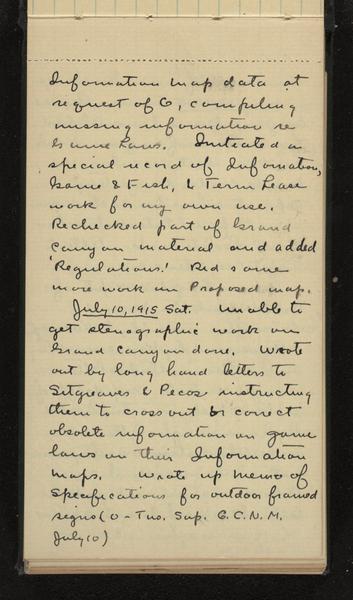 Information map data at
request of O, compiling
missing information re
Game Laws. Initiated a
special record of Information,
Game & Fish, & Term Lease
work for my own use.
Rechecked part of Grand
Canyon material and added
'Regulations.' Did some
more work on Proposed map.
July 10, 1915 Sat. Unable to
get stenographic work on
Grand Canyon done. Wrote
out by long hand letters to
Sitgreaves & Pecos instructing
them to cross out or correct
obsolete information on game
laws on their Information
maps. Wrote up memo of
Specifications for outdoor framed
signs (O - Tus. Sup. G.C.N.M.
July 10)